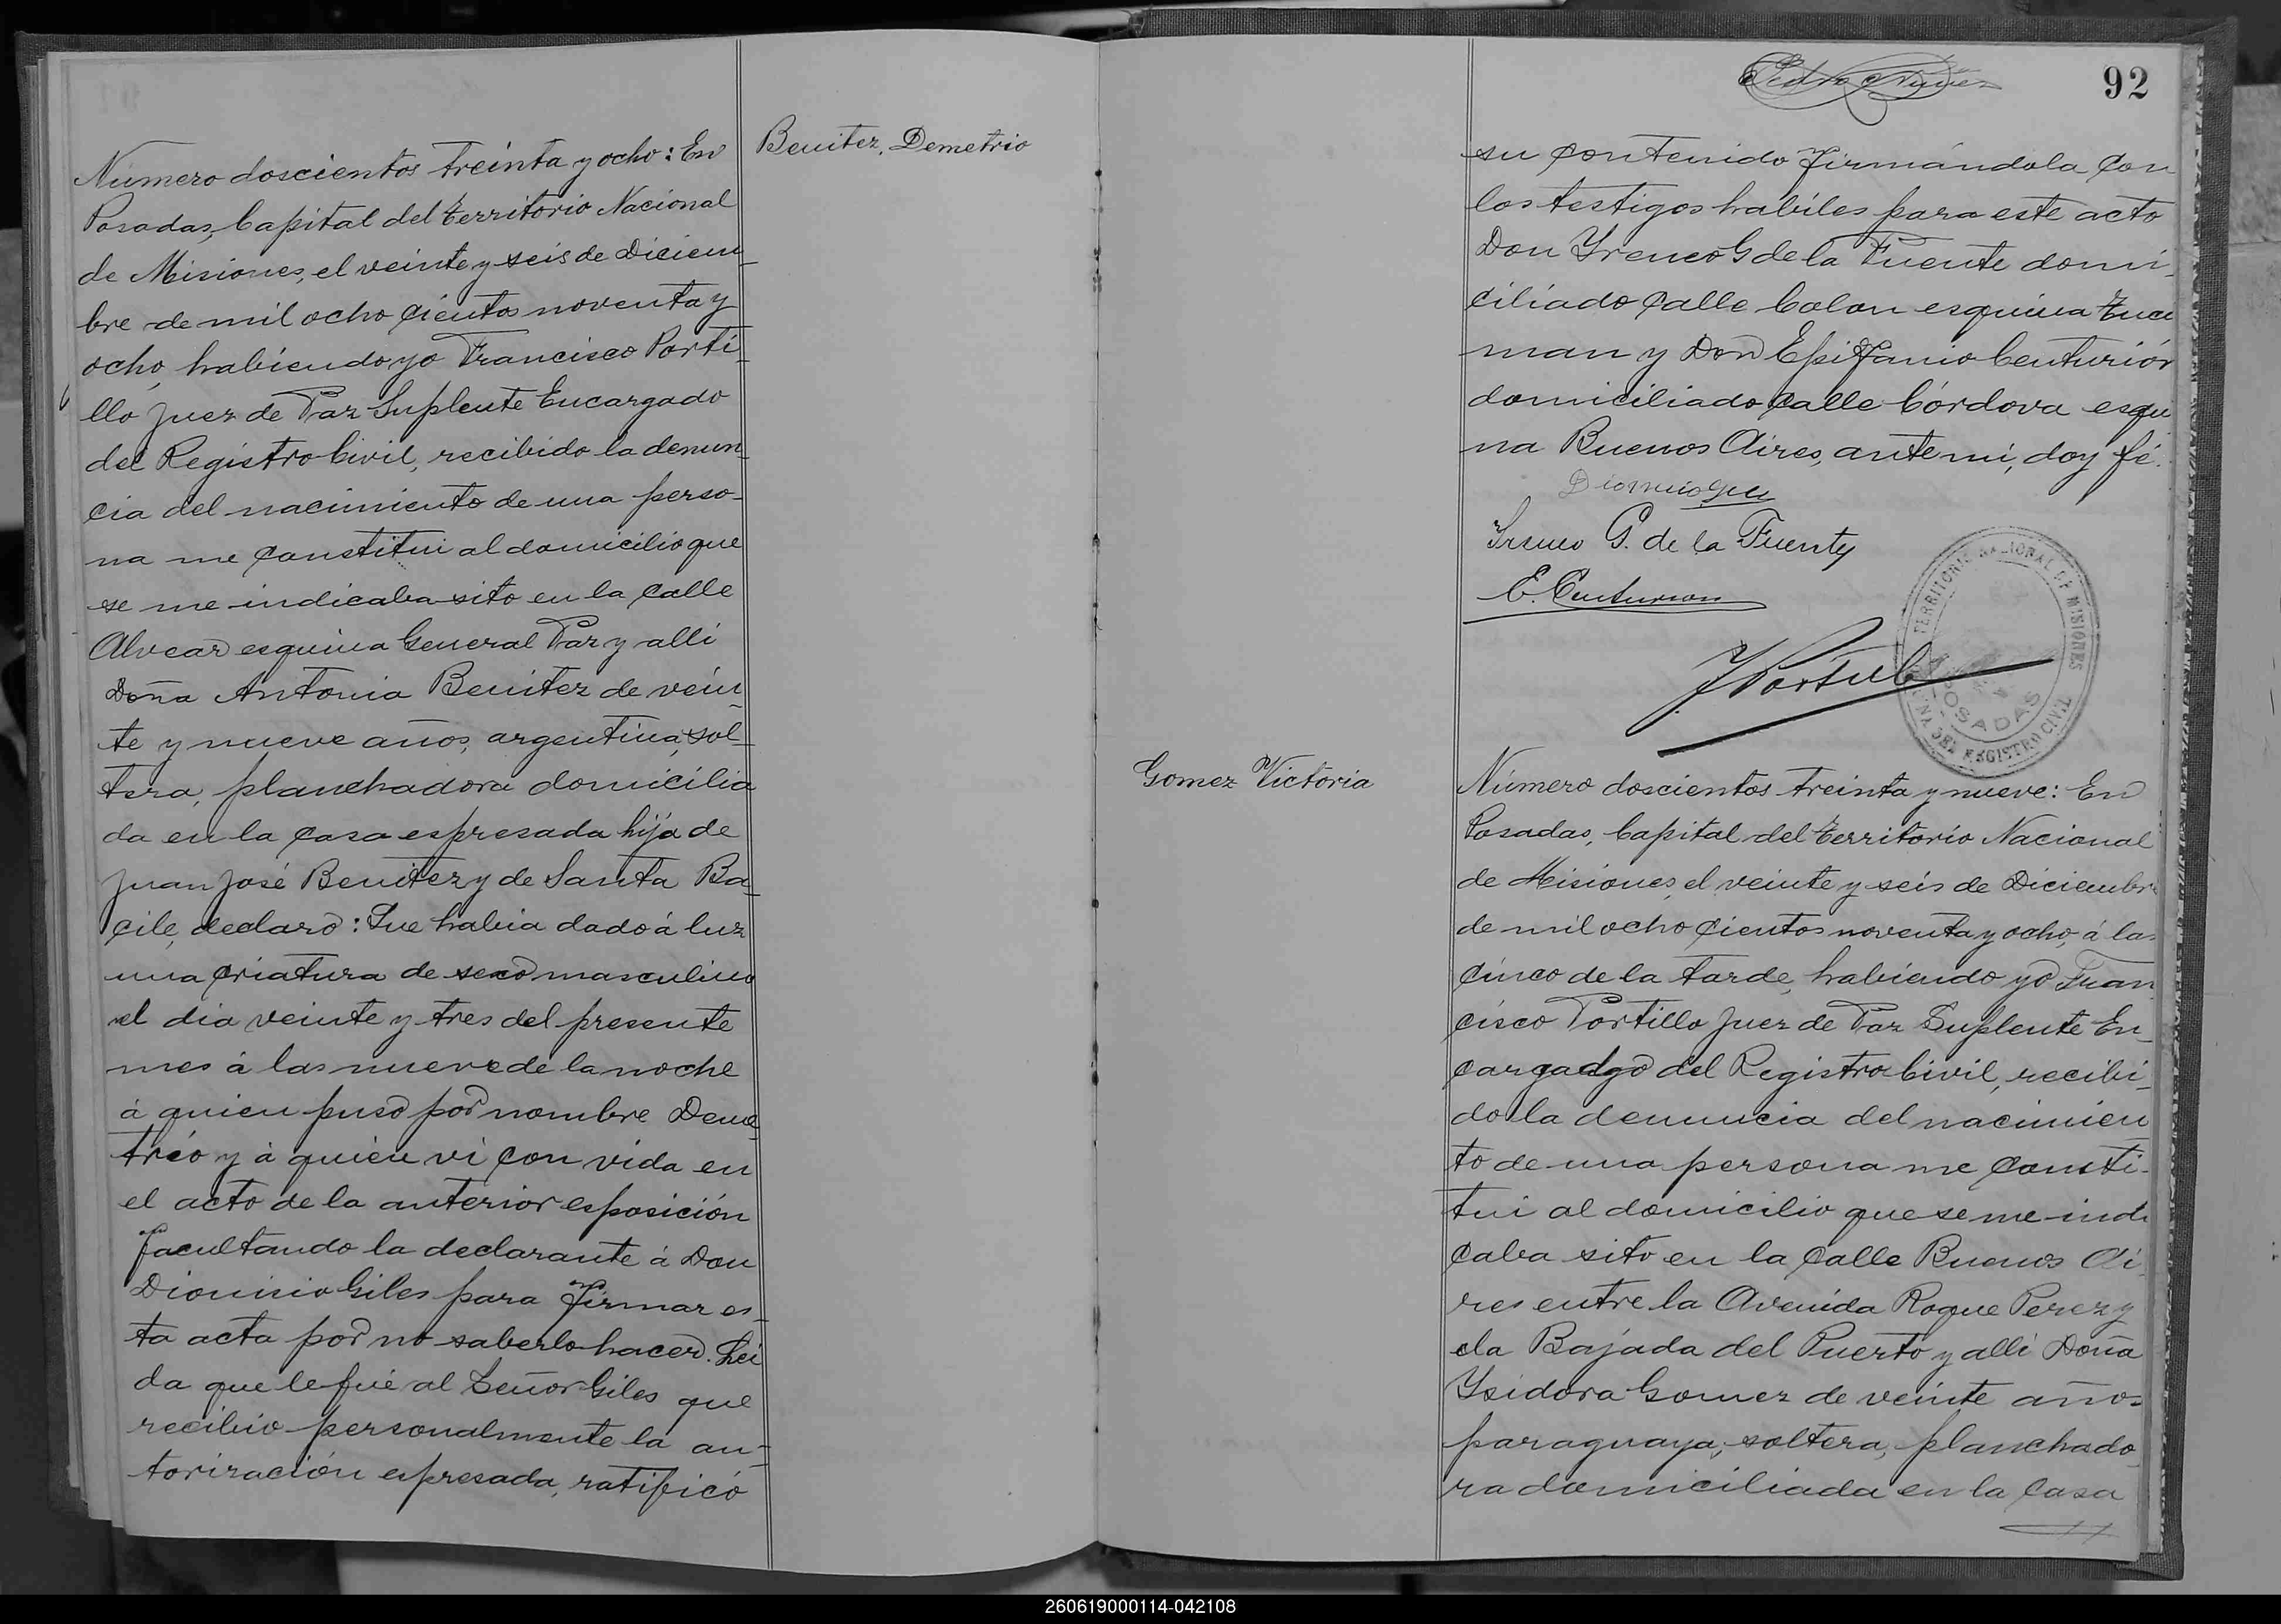 Benitez, Demetrio
Número doscientos treinta y ocho: En
Posadas, Capital del Territorio Nacional
de Misiones, el veinte y seis de Diciem_
bre de mil ocho cientos noventa y
ocho, habiendo yo Francisco Porti_
llo Juez de Paz Suplente Encargado
del Registro Civil, recibido la denun_
cia del nacimiento de una perso_
na me constitui al domicilio que
se me indicaba sito en la calle
Alvear esquina General Paz y alli
Doña Antonia Benitez de vein_
te y nueve años, argentina, sol_
tera, planchadora domicilia
da en la casa espresada hija de
Juan José Benitez y de Santa Ba_
cile, declaro: Que habia dado á luz
una criatura de sexo masculino
el dia veinte y tres del presente
mes á las nueve de la noche
á quien puso por nombre Deme_
trio y á quien vi con vida en
el acto de la anterior esposición
facultando la declarante á Don
Dionisio Giles para firmar es_
ta acta por no saberlo hacer. Lei
da que le fué al Señor Giles que
recibio personalmente la au_
torización espresada, ratificó
92
su contenido firmándola con
los testigos habiles para este acto
Don Yreneo G de la Fuente domi_
ciliado calle Colon esquina Tucu
man y Don Epifanio Centurión
domiciliado calle Córdova esqui
na Buenos Aires, ante mi, doy fé.
Yreneo G. de la Fuente
E. Centurion
F Portillo
TERRITORIO NACIONAL DE MISIONES
POSADAS
DEL REGISTRO CIVIL
Gomez Victoria
Número doscientos treinta y nueve: En
Posadas, Capital del Territorio Nacional
de Misiones, el veinte y seis de Diciembre
de mil ocho cientos noventa y ocho, á las
cinco de la tarde, habiendo yo Fran
cisco Portillo Juez de Paz Suplente En_
cargadgo del Registro Civil, recibi_
do la denuncia del nacimien
to de una persona me consti_
tui al domicilio que se me indi
caba sito en la calle Buenos Ai_
res entre la Avenida Roque Perez y
la Bajada del Puerto y alli Doña
Ysidora Gomez de veinte años
paraguaya, soltera, planchado_
ra domiciliada en la casa
260619000114-042108